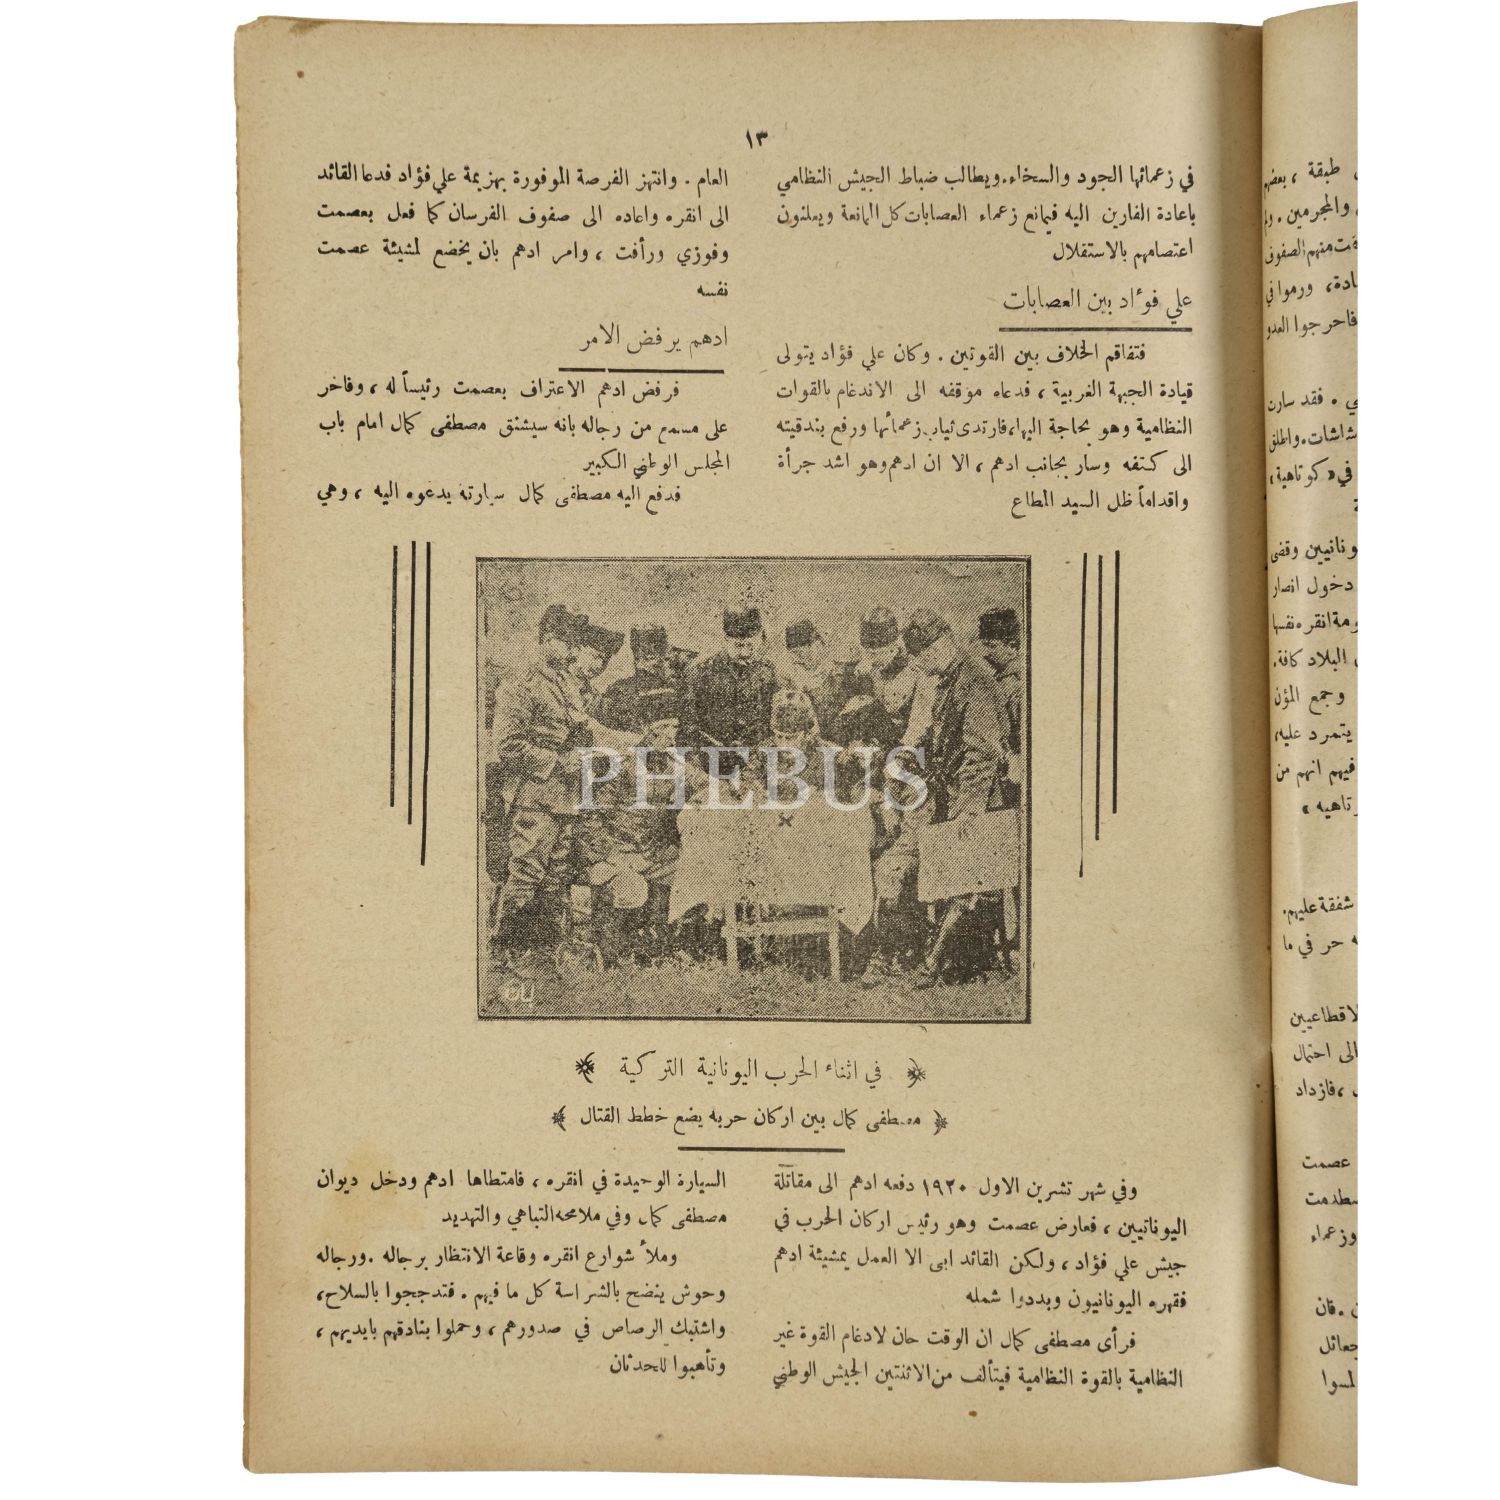 ١٣
في زعمائها الجود والسخاء. ويطالب ضباط الجيش النظامي
باعادة الفارين اليه فيمانع زعماء العصابات كل الممانعة ويعلنون
اعتصامهم بالاستقلال
علي فؤاد بين العصابات
فتفاقم الخلاف بين القوتين. وكان علي فؤاد يتولى
قيادة الجبهة الغربية، فدعاه موقفه الى الاندغام بالقوات
النظامية وهو بحاجة اليها، فارتدى ثياب زعمائها ورفع بندقيته
الى كتفه وسار بجانب ادهم، الا ان ادهم وهو اشد جرأة
واقداماً ظل السيد المطاع
وفي شهر تشرين الاول ١٩٢٠ دفعه ادهم الى مقاتلة
اليونانيين، فعارض عصمت وهو رئيس اركان الحرب في
جيش علي فؤاد، ولكن القائد ابى الا العمل بمشيئة ادهم
فقهره اليونانيون وبددوا شمله
فرأى مصطفى كمال ان الوقت حان لادغام القوة غير
النظامية بالقوة النظامية فيتألف من الاثنتين الجيش الوطني
العام. وانتهز الفرصة الموفورة بهزيمة علي فؤاد فدعا القائد
الى انقره واعاده الى صفوف الفرسان كما فعل بعصمت
وفوزي ورأفت، وامر ادهم بان يخضع لمشيئة عصمت
نفسه
ادهم يرفض الامر
فرفض ادهم الاعتراف بعصمت رئيساً له، وفاخر
على مسمع من رجاله بانه سيشنق مصطفى كمال امام باب
المجلس الوطني الكبير
فدفع اليه مصطفى كمال سيارته يدعوه اليه، وهي
السيارة الوحيدة في انقره، فامتطاها ادهم ودخل ديوان
مصطفى كمال وفي ملامحه التباهي والتهديد
وملأ شوارع انقره وقاعة الانتظار برجاله. ورجاله
وحوش ينضح بالشراسة كل ما فيهم. فتدججوا بالسلاح،
واشتبك الرصاص في صدورهم، وحملوا بنادقهم بايديهم،
وتأهبوا للحدثان
في اثناء الحرب اليونانية التركية
مصطفى كمال بين اركان حربه يضع خطط القتال
PHEBUS
طبقة، بعضهم
والمجرمين.
منهم الصفوف
ورموا في
فاحرجوا العدو
فقد سارت
واطلق
في « كوتاهية »
وقضى
دخول انصار
انقره نفسها
البلاد كافة.
وجمع المؤن
يتمرد عليه،
فيهم انهم من
شفقة عليهم.
حر في ما
الى احتمال
، فازداد
عصمت
وزعماء